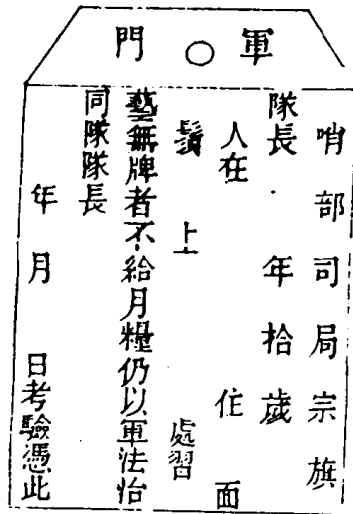 軍○門
哨部司局宗旗
隊長 年拾歲
人在 住 面
鬚 上 處習
藝無牌者不給月糧仍以軍法治
同隊隊長
年月 日考驗憑此